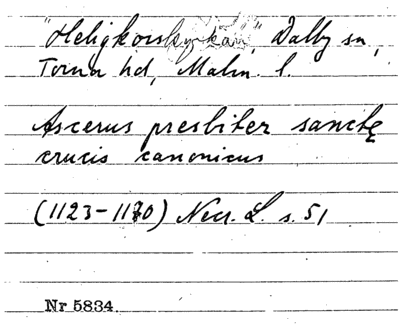 "Heligkorskyrkan", Dalby sn,
Torna hd, Malm. l.
Ascerus presbiter sanctę
crucis canonicus
(1123-1170) Necr. L. s. 51
Nr 5834